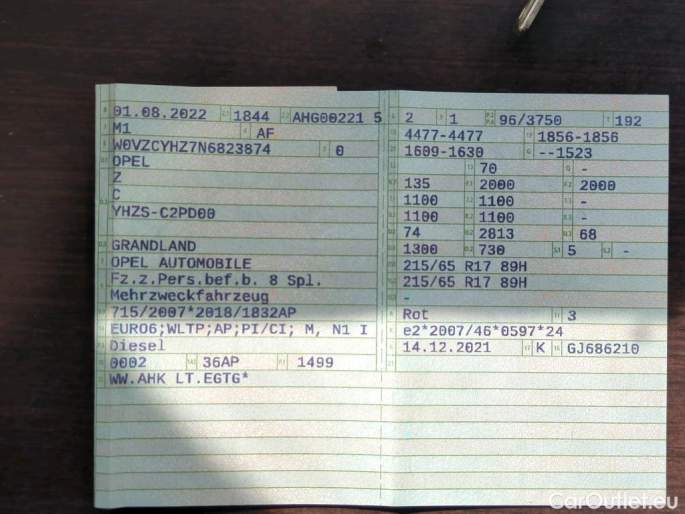 01.08.2022 1844 AHG00221 5
M1 AF
W0VZCYHZ7N6823874 0
OPEL
Z
C
YHZS-C2PD00
GRANDLAND
OPEL AUTOMOBILE
Fz.z.Pers.bef.b. 8 Spl.
Mehrzweckfahrzeug
715/2007*2018/1832AP
EURO6;WLTP;AP;PI/CI; M, N1 I
Diesel
0002 36AP 1499
WW.AHK LT.EGTG*
2 1 96/3750 192
4477-4477 1856-1856
1609-1630 --1523
70 -
135 2000 2000
1100 1100 -
1100 1100 -
74 2813 68
1300 730 5 -
215/65 R17 89H
215/65 R17 89H
-
Rot 3
e2*2007/46*0597*24
14.12.2021 K GJ686210
CarOutlet.eu